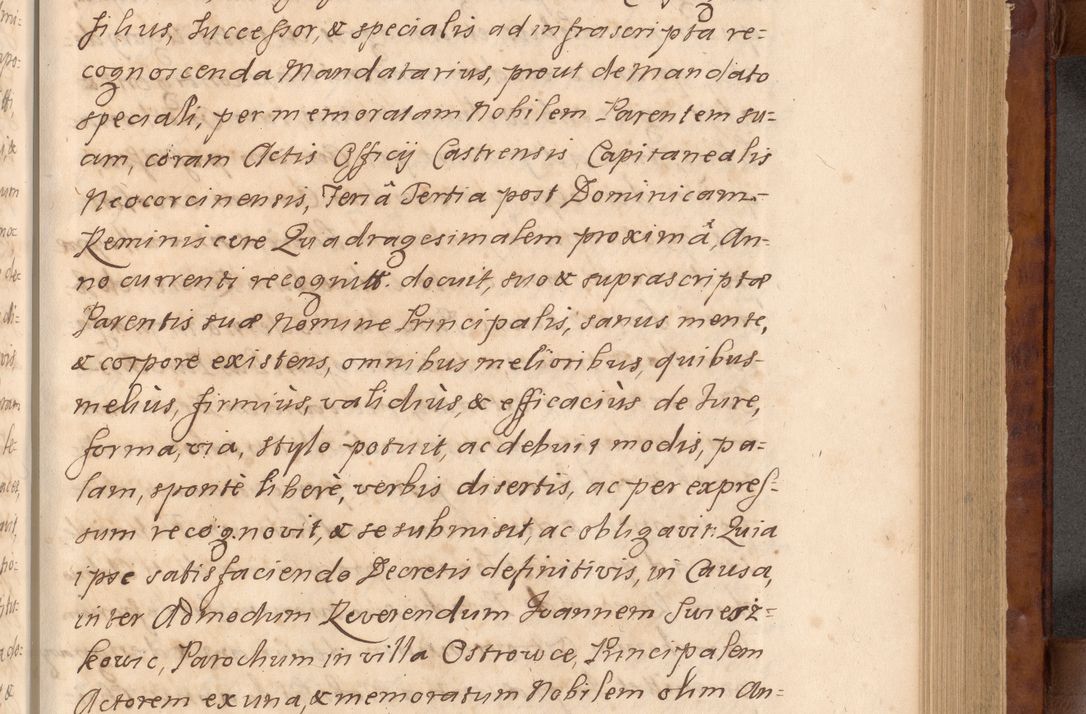 filius, Successor, & specialis ad infrascripta re=
cognoscenda Mandatarius, prout de Mandato
speciali, per memoratam Nobilem Parentem su=
am, coram Actis Officij Castrensis Capitanealis
Neocorcinensis, Feriâ Tertia post Dominicam=
Reminiscere Quadragesimalem proximâ, An=
no currenti recognitt. docuit, suo & suprascriptæ
Parentis suæ Nomine Principalis, sanus mente,
& corpore existens, omnibus melioribus, quibus=
meliùs, firmiùs, validiùs, & efficaciùs de Jure,
forma, via, stylo potuit, ac debuit modis, pa=
lam, spontè liberè, verbis disertis, ac per expres=
sum recognovit, & se submisit, ac obligavit: Quia
ipse satisfaciendo Decretis definitivis, in Causa,
inter Admodum Reverendum Joannem Swierż=
kowic, Parochum in villa Ostrowce, Principalem
Actorem ex una, & memoratum Nobilem olim An=